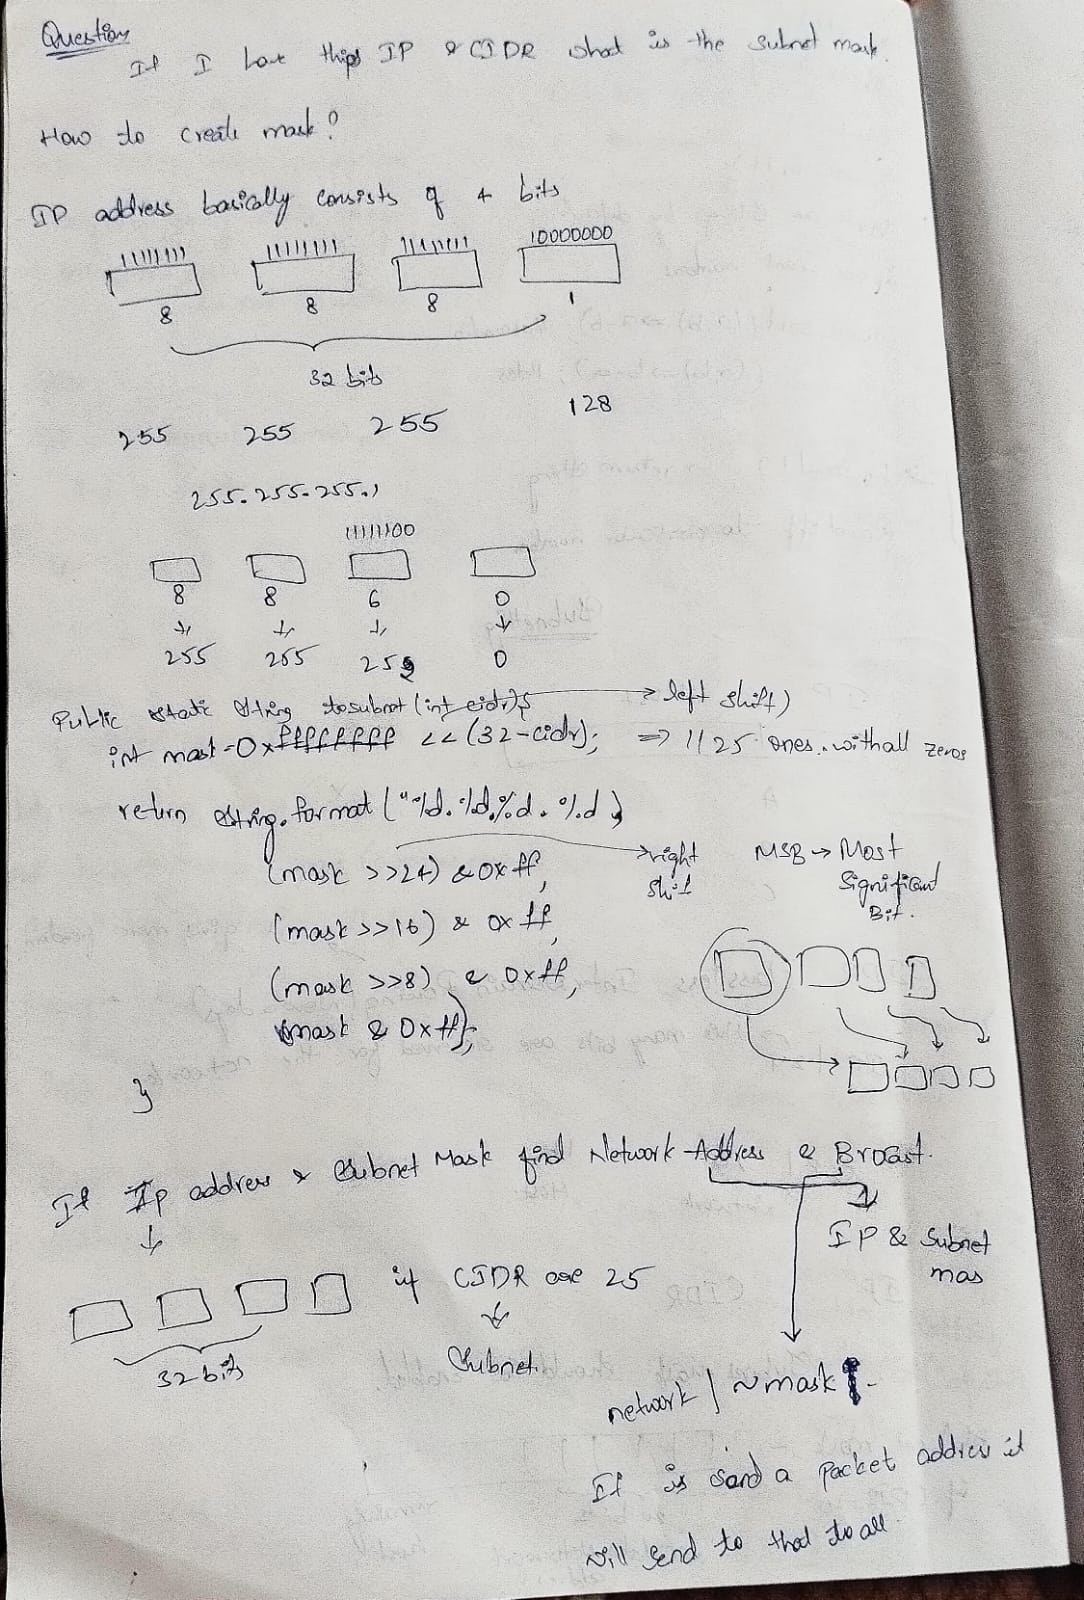 Question
If I have this IP & CIDR what is the subnet mask.
How to create mask?
IP address basically consists of 4 bits
11111111 11111111 11111111 10000000
8 8 8 1
32 bits
255 255 255 128
255.255.255.1
11111100
8 8 6 0
255 255 252 0
Public static String tosubnet (int cidr){ → left shift)
int mask = 0xffffffff << (32-cidr); ⇒ 1125 ones. with all zeros
return String.format ("%d.%d.%d.%d)
(mask >>24) & 0xff, → right shif
(mask >>16) & 0xff,
(mask >>8) & 0xff,
(mask & 0xff);
}
MSB → Most
Significant
Bit.
If Ip address & Subnet Mask find Network Address & Brocast.
IP & Subnet
mas
if CIDR are 25
32 bits
Subnet.
network | ~mask
If is send a packet address it
will send to that to all.